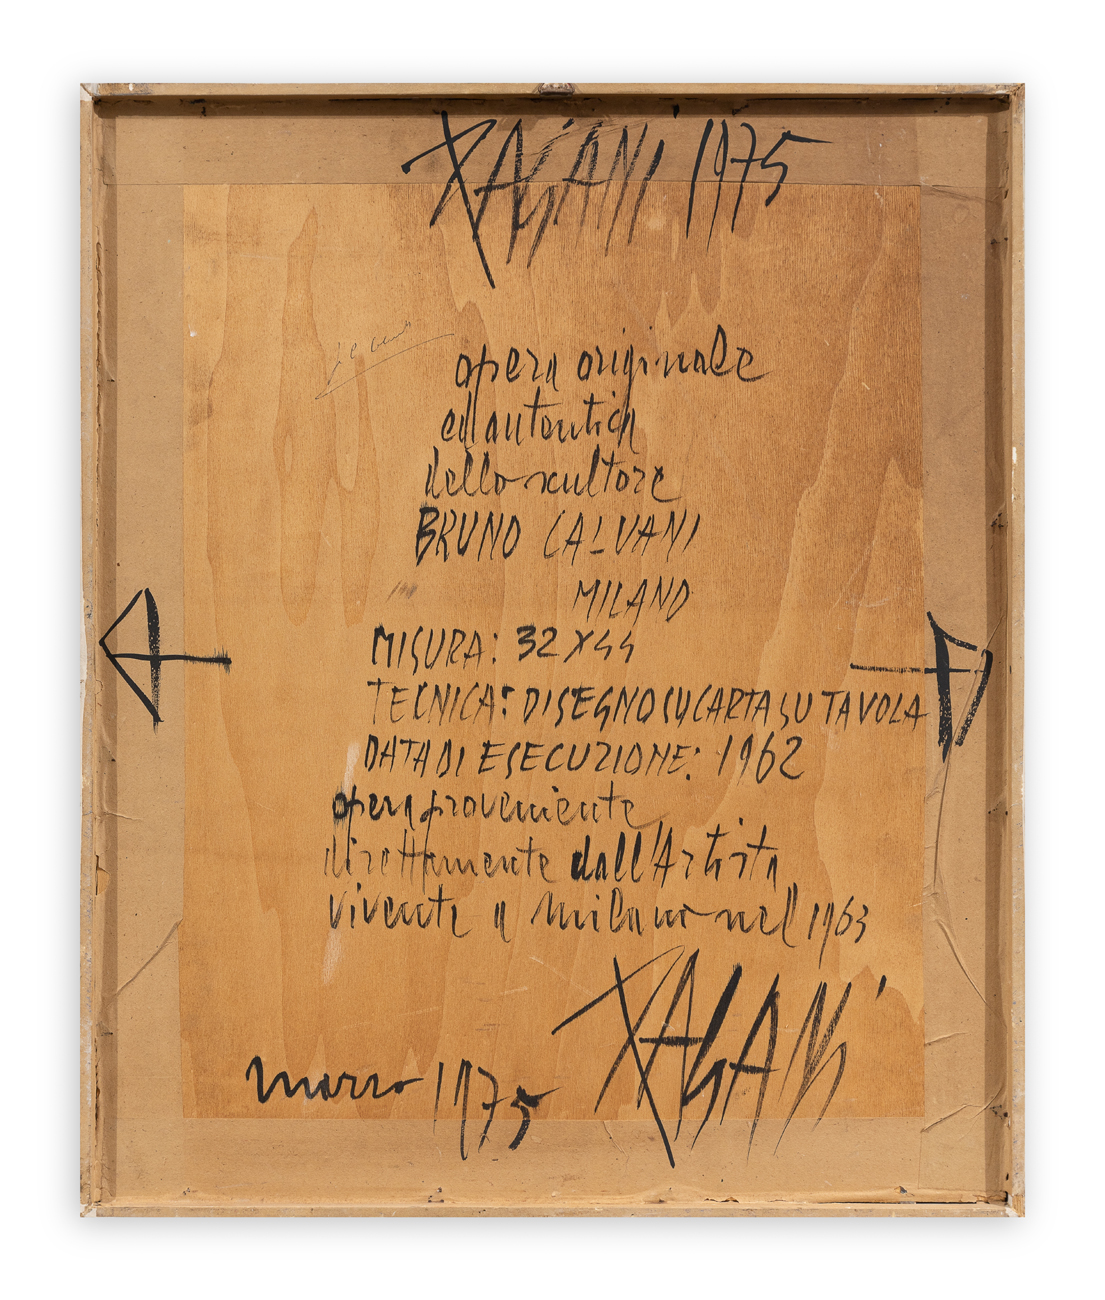 PAGANI 1975
opera originale
ed autentica
dello scultore
BRUNO CALVANI
MILANO
MISURA: 32 X 44
TECNICA: DISEGNO SU CARTA SU TAVOLA
DATA DI ESECUZIONE: 1962
opera proveniente
direttamente dall'Artista
vivente a milano nel 1963
PAGANI
marzo 1975